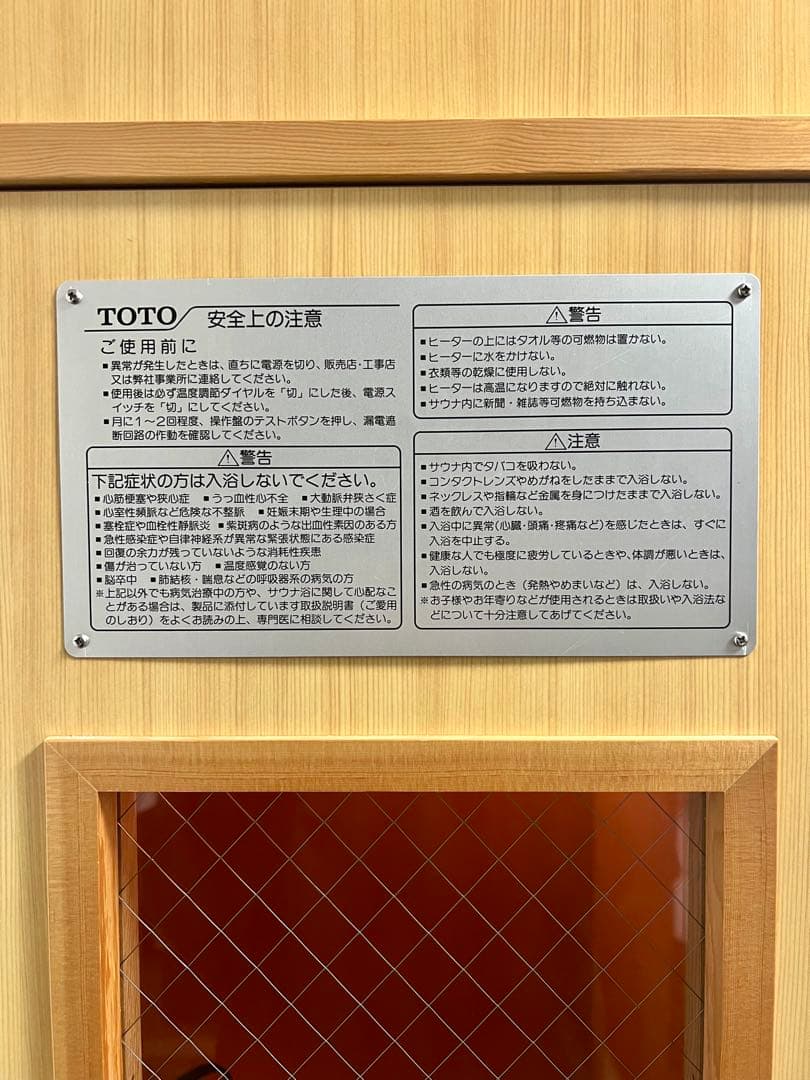 TOTO 安全上の注意
ご使用前に
■異常が発生したときは、直ちに電源を切り、販売店・工事店
又は弊社事業所に連絡してください。
■使用後は必ず温度調節ダイヤルを「切」にした後、電源ス
イッチを「切」にしてください。
■月に1〜2回程度、操作盤のテストボタンを押し、漏電遮
断回路の作動を確認してください。
⚠警告
下記症状の方は入浴しないでください。
■心筋梗塞や狭心症 ■うっ血性心不全 ■大動脈弁狭さく症
■心室性頻脈など危険な不整脈 ■妊娠末期や生理中の場合
■塞栓症や血栓性静脈炎 ■紫斑病のような出血性素因のある方
■急性感染症や自律神経系が異常な緊張状態にある感染症
■回復の余力が残っていないような消耗性疾患
■傷が治っていない方 ■温度感覚のない方
■脳卒中 ■肺結核・喘息などの呼吸器系の病気の方
※上記以外でも病気治療中の方や、サウナ浴に関して心配なこ
とがある場合は、製品に添付しています取扱説明書（ご愛用
のしおり）をよくお読みの上、専門医に相談してください。
⚠警告
■ヒーターの上にはタオル等の可燃物は置かない。
■ヒーターに水をかけない。
■衣類等の乾燥に使用しない。
■ヒーターは高温になりますので絶対に触れない。
■サウナ内に新聞・雑誌等可燃物を持ち込まない。
⚠注意
■サウナ内でタバコを吸わない。
■コンタクトレンズやめがねをしたままで入浴しない。
■ネックレスや指輪など金属を身につけたままで入浴しない。
■酒を飲んで入浴しない。
■入浴中に異常（心臓・頭痛・疼痛など）を感じたときは、すぐに
入浴を中止する。
■健康な人でも極度に疲労しているときや、体調が悪いときは、
入浴しない。
■急性の病気のとき（発熱やめまいなど）は、入浴しない。
※お子様やお年寄りなどが使用されるときは取扱いや入浴法な
どについて十分注意してあげてください。